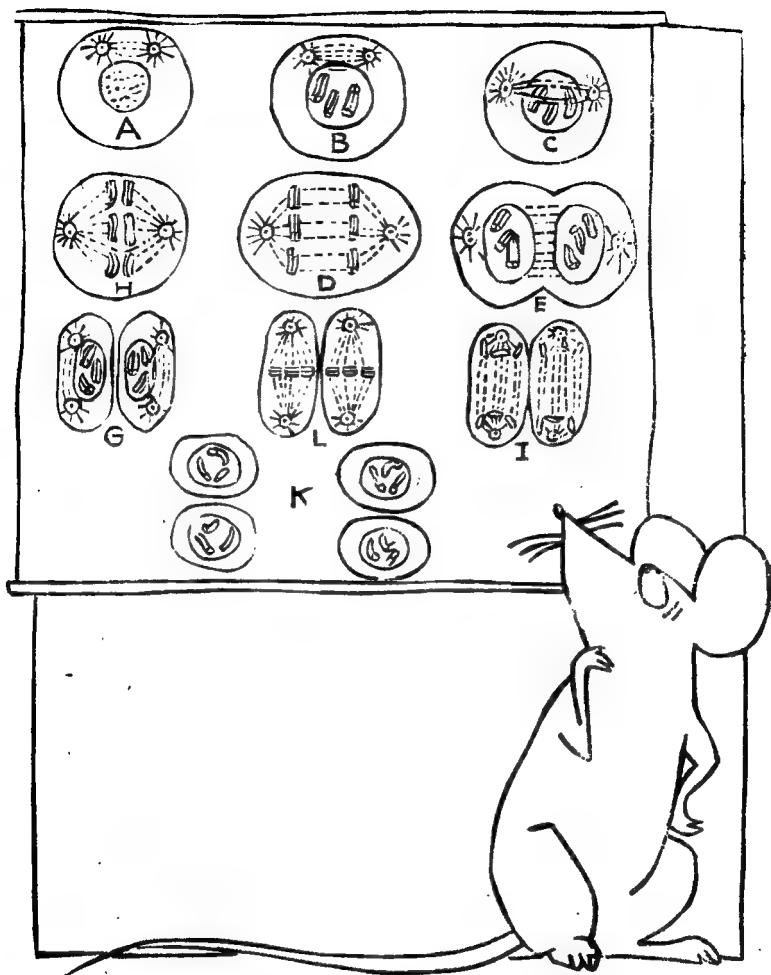 A B C
H D E
G L I
K